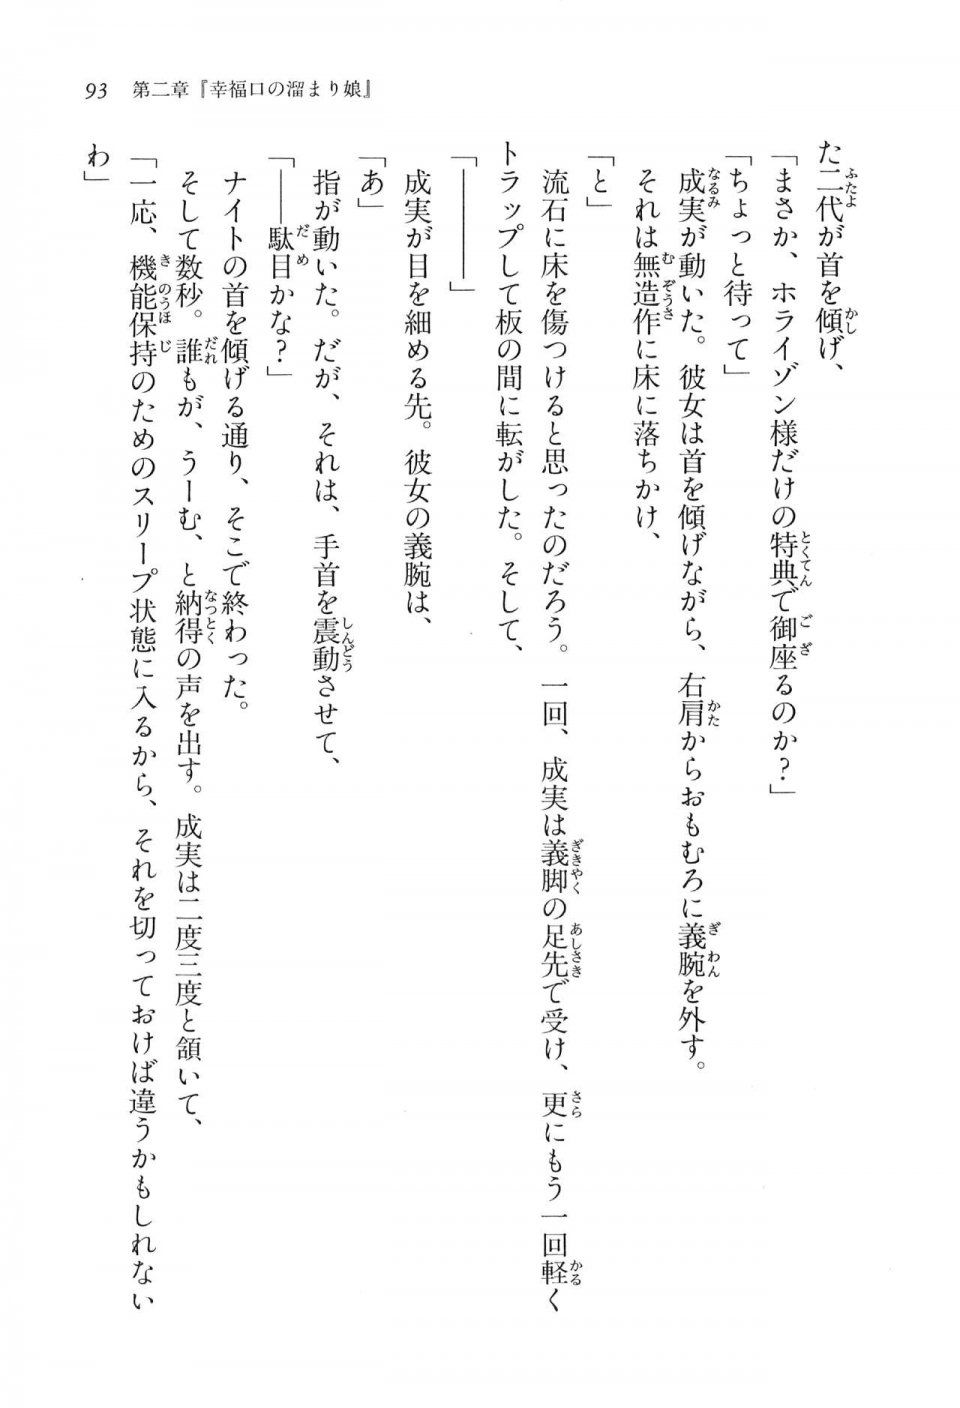 93 第二章『幸福口の溜まり娘』
た二代が首を傾げ、
「まさか、ホライゾン様だけの特典で御座るのか？」
「ちょっと待って」
成実が動いた。彼女は首を傾げながら、右肩からおもむろに義腕を外す。
それは無造作に床に落ちかけ、
「と」
流石に床を傷つけると思ったのだろう。一回、成実は義脚の足先で受け、更にもう一回軽く
トラップして板の間に転がした。そして、
「――――」
成実が目を細める先。彼女の義腕は、
「あ」
指が動いた。だが、それは、手首を震動させて、
「――駄目かな？」
ナイトの首を傾げる通り、そこで終わった。
そして数秒。誰もが、うーむ、と納得の声を出す。成実は二度三度と頷いて、
「一応、機能保持のためのスリープ状態に入るから、それを切っておけば違うかもしれない
わ」